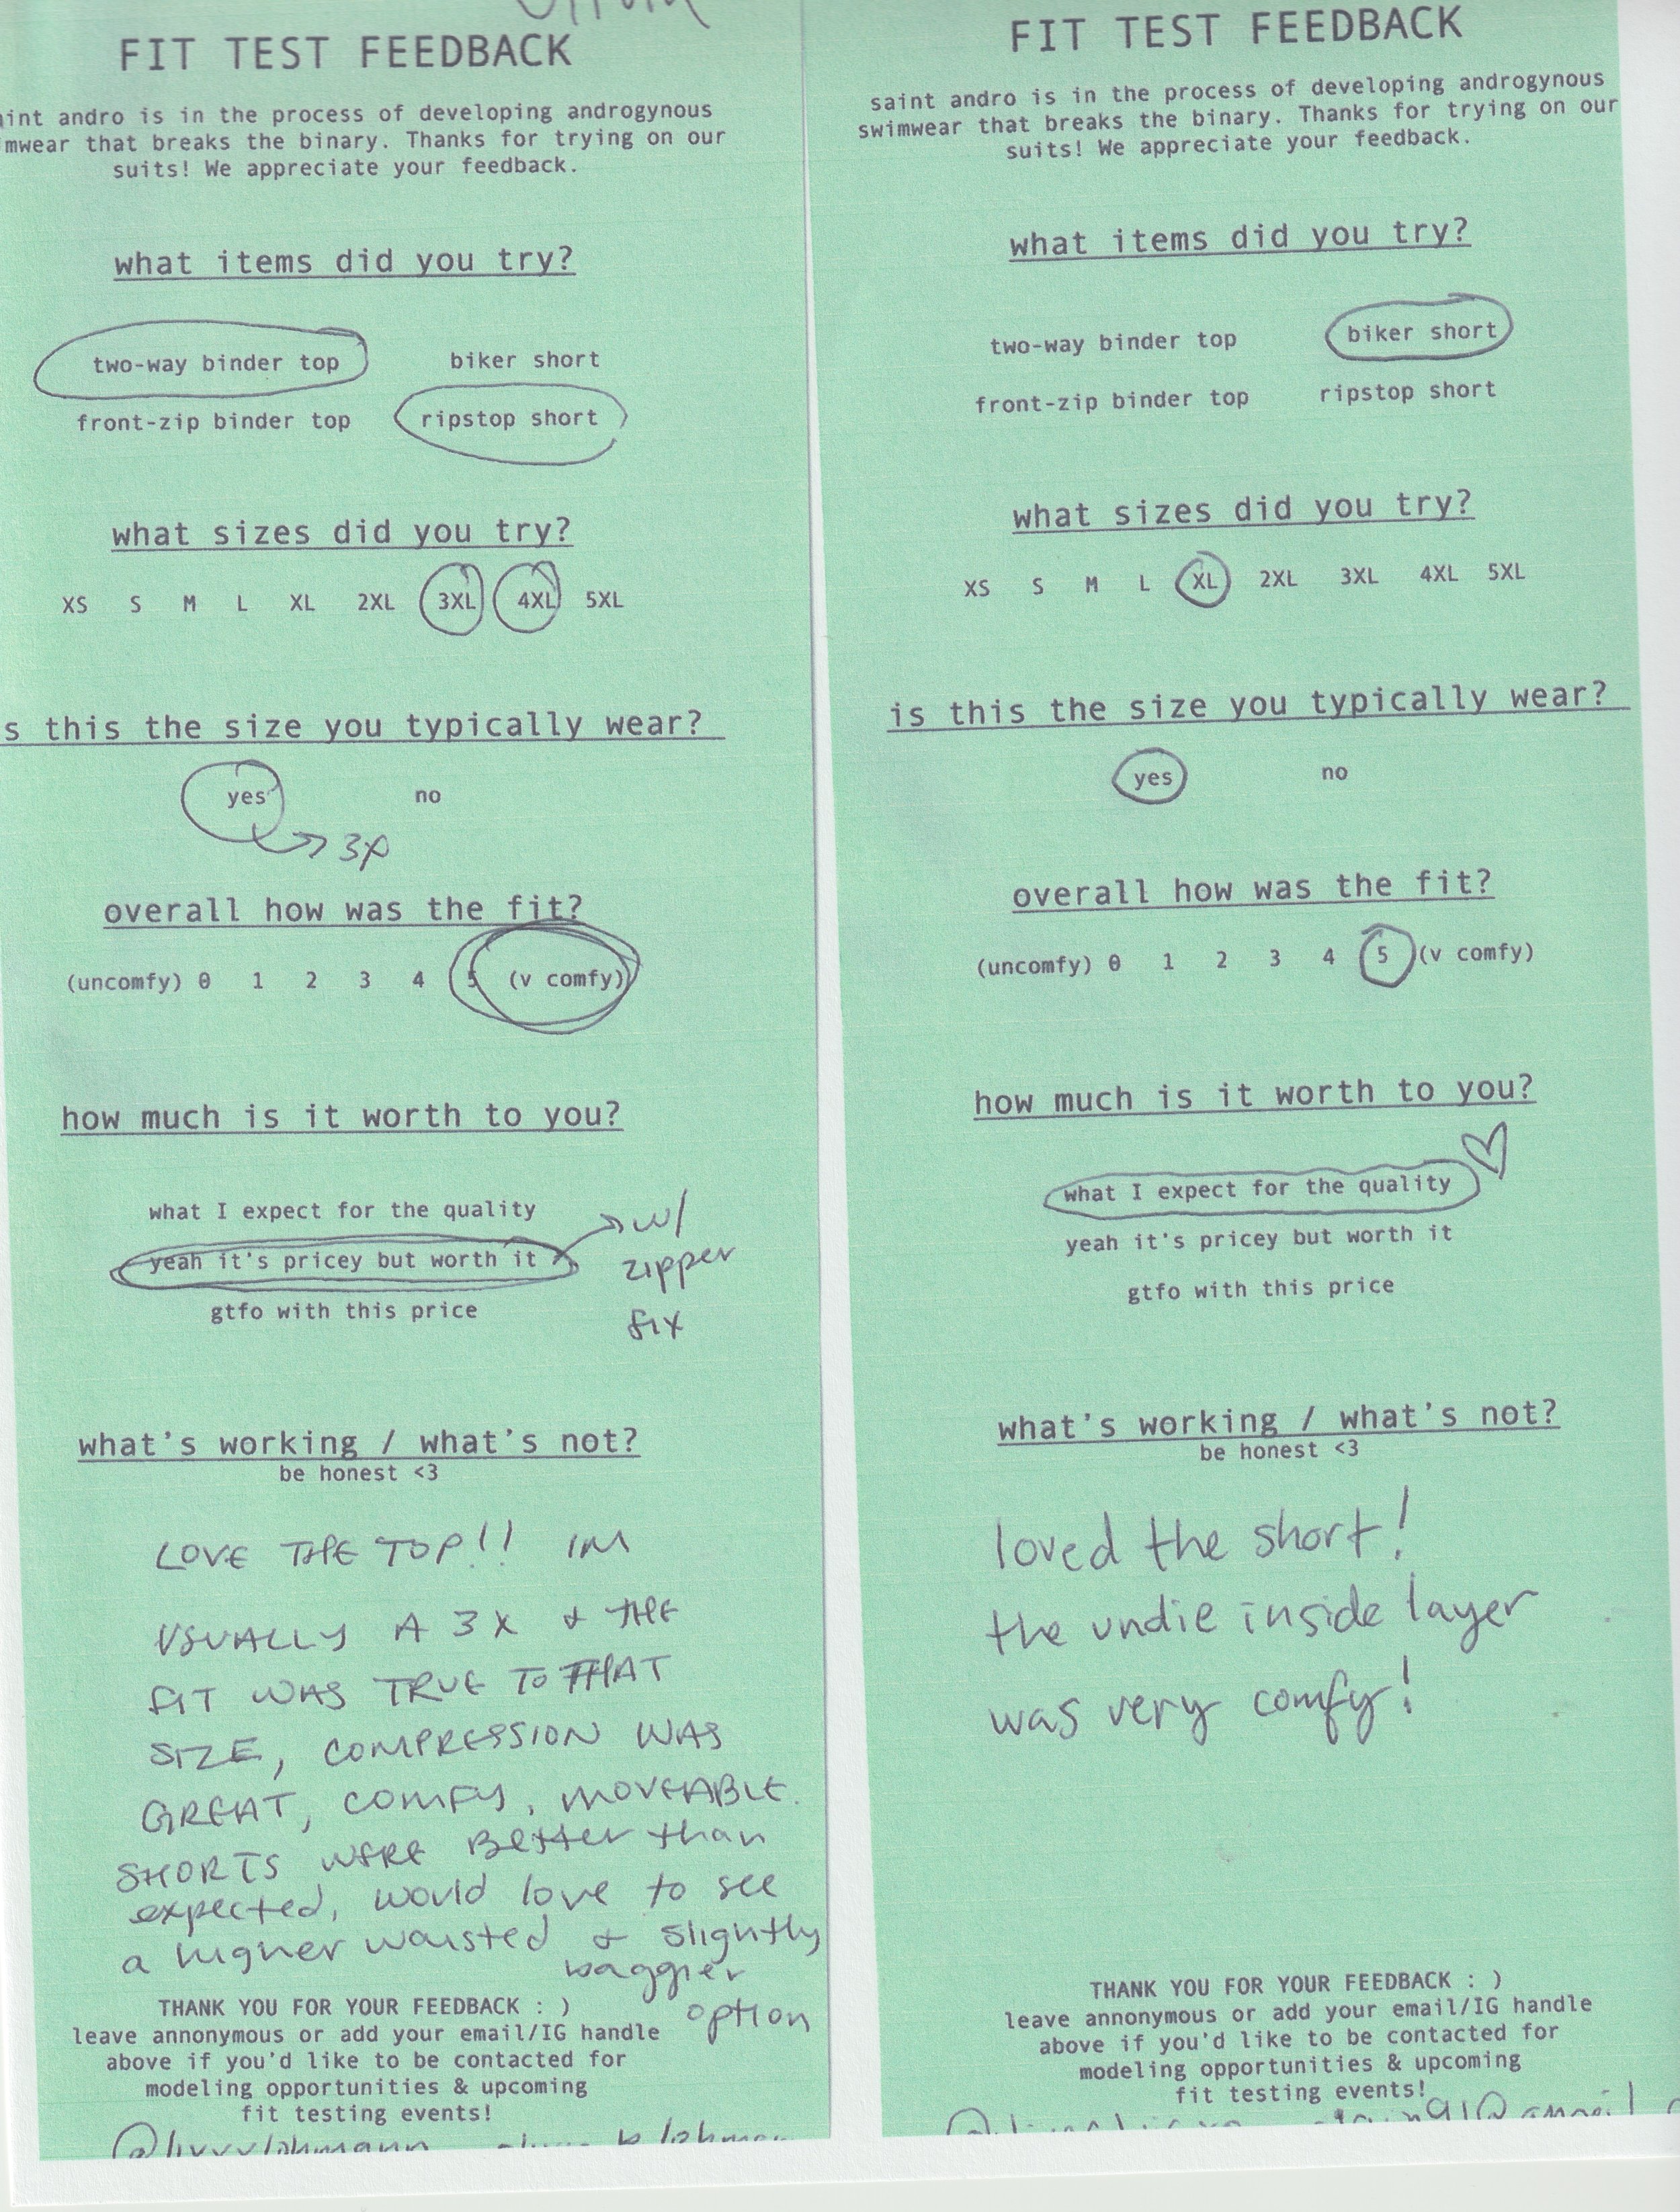 FIT TEST FEEDBACK
int andro is in the process of developing androgynous
mwear that breaks the binary. Thanks for trying on our
suits! We appreciate your feedback.
what items did you try?
two-way binder top biker short
front-zip binder top ripstop short
what sizes did you try?
XS S M L XL 2XL 3XL 4XL 5XL
s this the size you typically wear?
yes no
3X
overall how was the fit?
(uncomfy) 0 1 2 3 4 5 (v comfy)
how much is it worth to you?
what I expect for the quality
yeah it's pricey but worth it
gtfo with this price
w/
zipper
fix
what's working / what's not?
be honest <3
LOVE THE TOP!! IM
USUALLY A 3X & THE
FIT WAS TRUE TO THAT
SIZE, COMPRESSION WAS
GREAT, COMFY, MOVEABLE.
SHORTS WERE Better than
expected, would love to see
a higher waisted & slightly
baggier
option
THANK YOU FOR YOUR FEEDBACK : )
leave annonymous or add your email/IG handle
above if you'd like to be contacted for
modeling opportunities & upcoming
fit testing events!
FIT TEST FEEDBACK
saint andro is in the process of developing androgynous
swimwear that breaks the binary. Thanks for trying on our
suits! We appreciate your feedback.
what items did you try?
two-way binder top biker short
front-zip binder top ripstop short
what sizes did you try?
XS S M L XL 2XL 3XL 4XL 5XL
is this the size you typically wear?
yes no
overall how was the fit?
(uncomfy) 0 1 2 3 4 5 (v comfy)
how much is it worth to you?
what I expect for the quality
yeah it's pricey but worth it
gtfo with this price
what's working / what's not?
be honest <3
loved the short!
the undie inside layer
was very comfy!
THANK YOU FOR YOUR FEEDBACK : )
leave annonymous or add your email/IG handle
above if you'd like to be contacted for
modeling opportunities & upcoming
fit testing events!